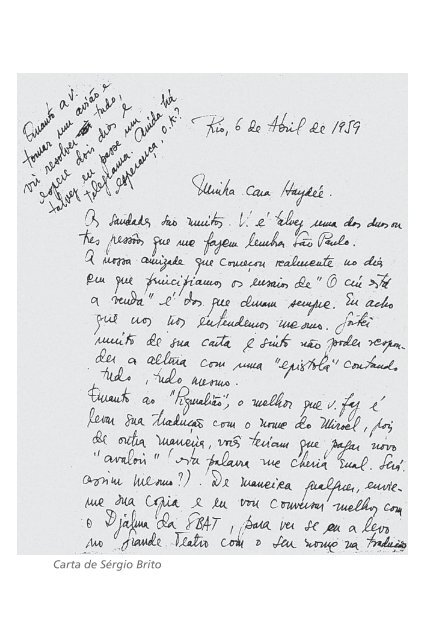 Quanto a v.
tomar um avião e
vir resolver tudo,
espere dois dias e
talvez eu passe um
telegrama. Ainda há
esperança, O.K.?
Rio, 6 de Abril de 1959
Minha cara Haydée.
As saudades são muitas. V. é talvez uma das duas ou
tres pessôas que me fazem lembrar São Paulo.
A nossa amizade que começou realmente no dia
em que principiamos os ensaios de "O céu está
a venda" é das que duram sempre. Eu acho
que nos nos entendemos mesmo. Gostei
muito de sua carta e sinto não poder respon-
der a altura com uma "epistola" contando
tudo, tudo mesmo.
Quanto ao "Pigmalião", o melhor que v. faz é
levar sua tradução com o nome do Miroel, pois
de outra maneira, vocês teriam que pagar novo
"avaloir" (esta palavra me cheira mal. Será
assim mesmo?). De maneira qualquer, envie-
me sua copia e eu vou conversar melhor com
o Djalma da SBAT, para ver se eu a levo
no Grande Teatro com o seu nome na tradução
Carta de Sérgio Brito